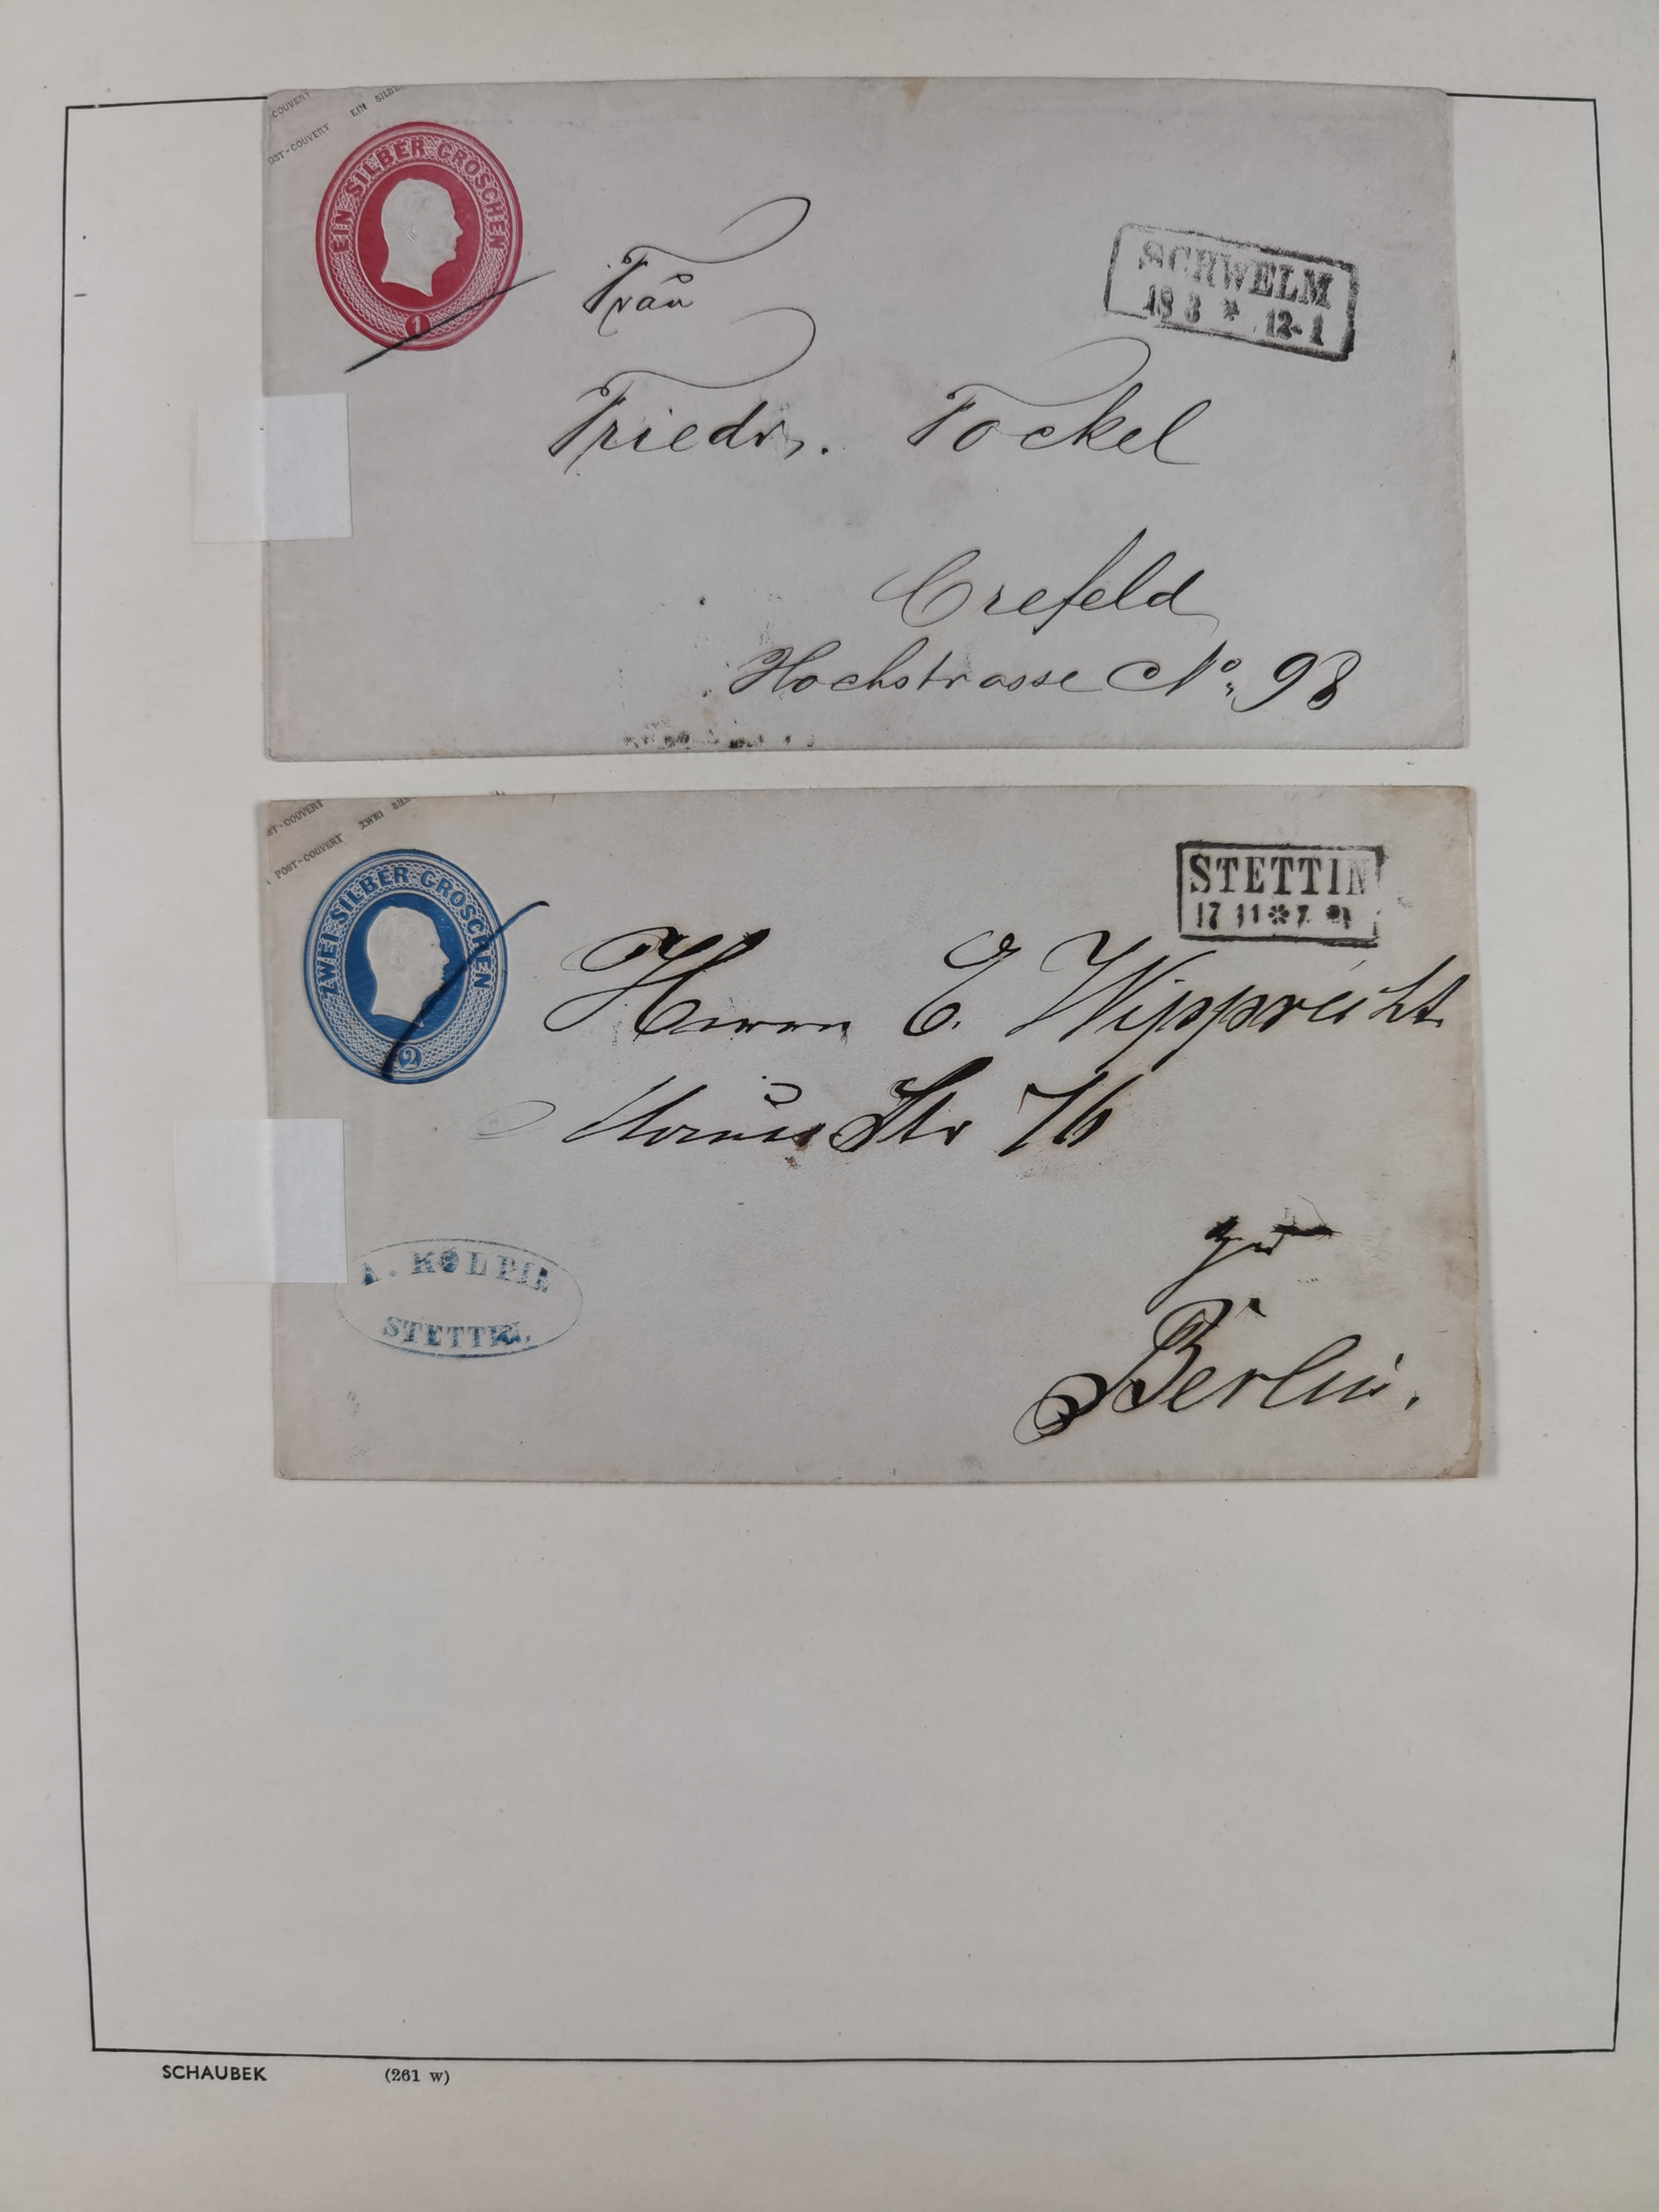 -COUVERT
OST-COUVERT EIN SILBE
EIN SILBER GROSCHEN
1
SCHWELM
18 3 * 12-1
Frau
Friedr. Fockel
Crefeld
Hochstrasse No. 98
ST-COUVERT
POST-COUVERT ZWEI SIL
ZWEI SILBER GROSCHEN
2
STETTIN
17 11 * 7
Herrn E. Wipprecht
Str 76
zu
Berlin.
STETTIN
SCHAUBEK (261 w)